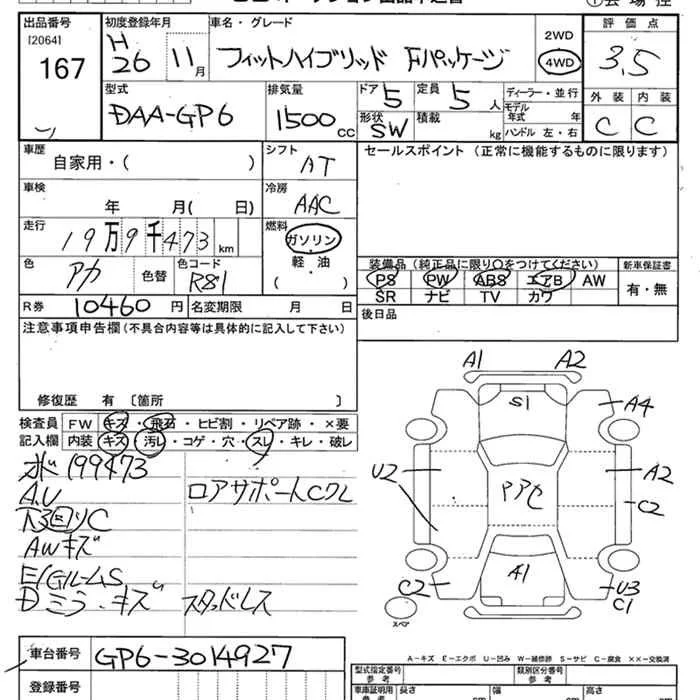 出品番号
[2064]
167
初度登録年月
H
26
11月
車名・グレード
フィットハイブリッド Fパッケージ
2WD
4WD
評価点
3.5
外装 内装
C C
型式
DAA-GP6
排気量
1500cc
ドア
5
定員
5人
形状
SW
積載
kg
ディーラー・並行
モデル年式 年
ハンドル 左・右
車歴
自家用・( )
シフト
AT
セールスポイント(正常に機能するものに限ります)
車検
年 月( 日)
冷房
AAC
走行
19万9千473km
燃料
ガソリン
軽・油
( )
色
アカ
色替
色コード
R81
装備品(純正品に限り○をつけてください)
PS PW ABS エアB AW
SR ナビ TV カワ
新車保証書
有・無
R券
10460円
名変期限 月 日
後日品
注意事項申告欄(不具合内容等は具体的に記入して下さい)
修復歴 有〔箇所 〕
検査員
記入欄
FW キズ・飛石・ヒビ割・リペア跡・×要
内装 キズ・汚レ・コゲ・穴・スレ・キレ・破レ
199473
A.U
ロアサポートCクレ
AWキズ
Dミラーキズ スタッドレス
A1 A2
S1
A4
U2
A2
C2
A1
C2
U3
C1
スペア
車台番号
GP6-3014927
登録番号
A-キズ E-エクボ U-凹み W-補修跡 S-サビ C-腐食 ××-交換済
型式指定番号
参考
類別区分番号
参考
車庫証明用
参考
長さ cm
幅 cm
高さ cm